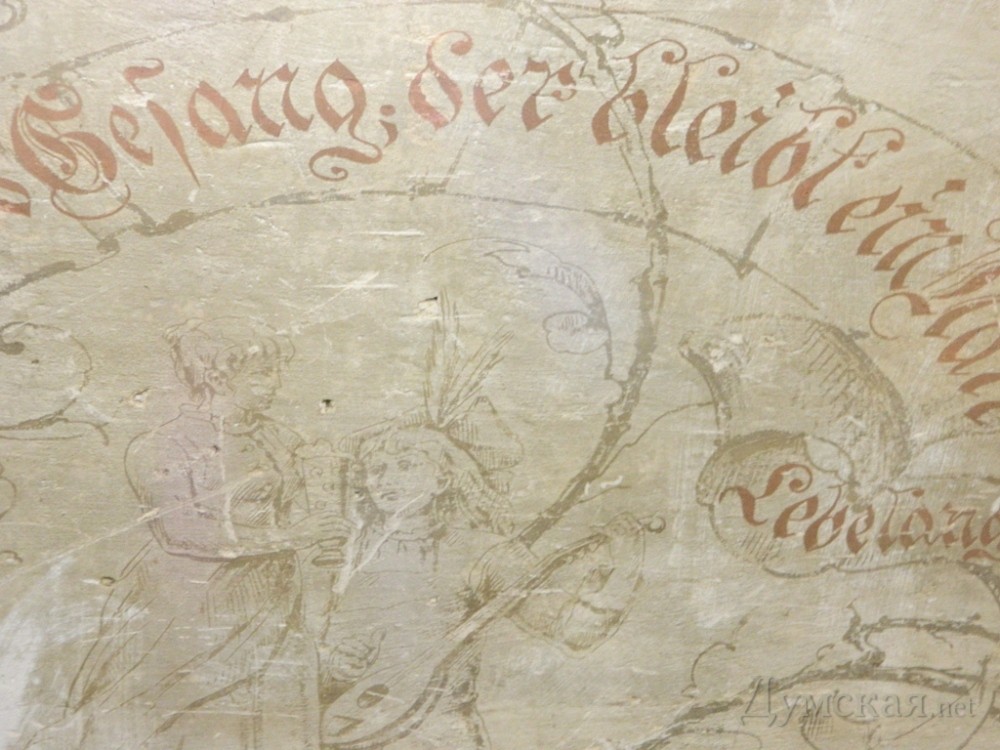 Gesang; der bleibt ein Narr
Lebelang
Думская.net